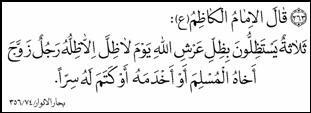 ﴿٣٦٣﴾ قالَ الإمامُ الكاظِمُ(ع):
ثَلاثَةٌ يَسْتَظِلُّونَ بِظِلِّ عَرْشِ اللهِ يَوْمَ لاظِلَّ اِلاّظِلُّهُ رَجُلٌ زَوَّجَ
أخاهُ المُسْلِمَ أوْ أخْدَمَهُ أوْ كَتَمَ لَهُ سِرّاً.
بحارالانوار ٣٥٦/٧٤